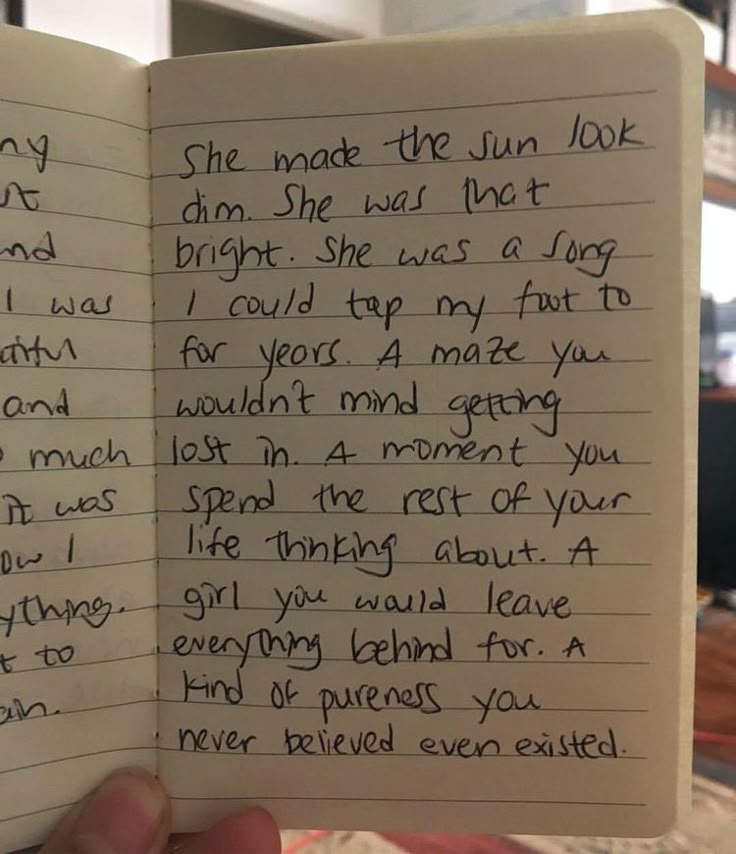 ny
st
nd
I was
and
much
it was
ow I
ything.
t to
ain.
She made the sun look
dim. She was that
bright. She was a song
I could tap my foot to
for years. A maze you
wouldn't mind getting
lost in. A moment you
spend the rest of your
life thinking about. A
girl you would leave
everything behind for. A
kind of pureness you
never believed even existed.